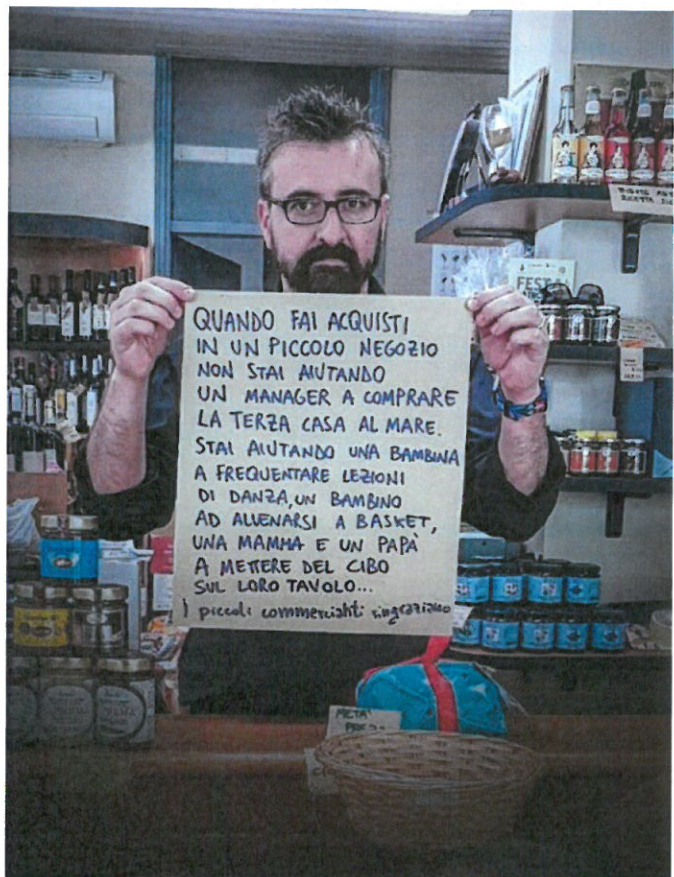 QUANDO FAI ACQUISTI
IN UN PICCOLO NEGOZIO
NON STAI AIUTANDO
UN MANAGER A COMPRARE
LA TERZA CASA AL MARE.
STAI AIUTANDO UNA BAMBINA
A FREQUENTARE LEZIONI
DI DANZA, UN BAMBINO
AD ALLENARSI A BASKET,
UNA MAMMA E UN PAPÀ
A METTERE DEL CIBO
SUL LORO TAVOLO...
I piccoli commercianti ringraziano
METÀ